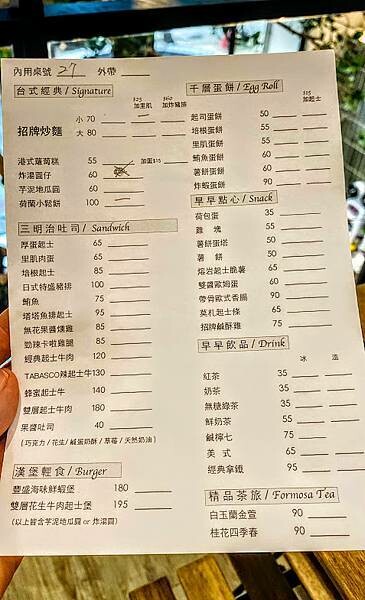 內用桌號 27 外帶
台式經典 / Signature
$25 加里肌 $60 加炸豬排
招牌炒麵 小 70
大 80
港式蘿蔔糕 55 加蛋$15
炸湯圓仔 60
芋泥地瓜圓 60
荷蘭小鬆餅 100
三明治吐司 / Sandwich
厚蛋起士 65
里肌肉蛋 65
培根起士 85
日式特盛豬排 100
鮪魚 75
塔塔魚排起士 95
無花果醬燻雞 85
勁辣卡啦雞腿 85
經典起士牛肉 120
TABASCO辣起士牛 130
蜂蜜起士牛 140
雙層起士牛肉 180
果醬吐司 40
( 巧克力 / 花生 / 鹹蛋奶酥 / 草莓 / 天然奶油 )
漢堡輕食 / Burger
豐盛海味鮮蝦堡 180
雙層花生牛肉起士堡 195
(以上皆含芋泥地瓜圓 or 炸湯圓)
千層蛋餅 / Egg Roll
$15 加起士
起司蛋餅 50
培根蛋餅 55
里肌蛋餅 55
鮪魚蛋餅 60
薯餅蛋餅 60
炸蝦蛋餅 90
早早點心 / Snack
荷包蛋 35
雞塊 55
薯餅蛋塔 50
薯餅 50
熔岩起士脆薯 65
雙醬歐姆蛋 60
帶骨歐式香腸 90
莫札起士條 65
招牌鹹酥雞 65
早早飲品 / Drink
冰 溫
紅茶 35
奶茶 35
無糖綠茶 35
鮮奶茶 55
鹹檸七 75
美式 65
經典拿鐵 95
精品茶旅 / Formosa Tea
白玉蘭金萱 90
桂花四季春 90